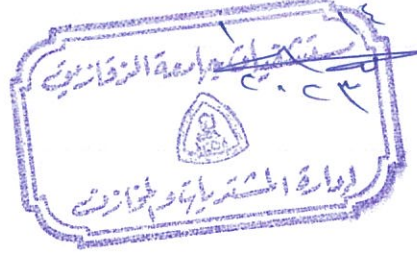 مستشفيات جامعة الزقازيق
٢٠٢٣
إدارة المشتريات والمخازن